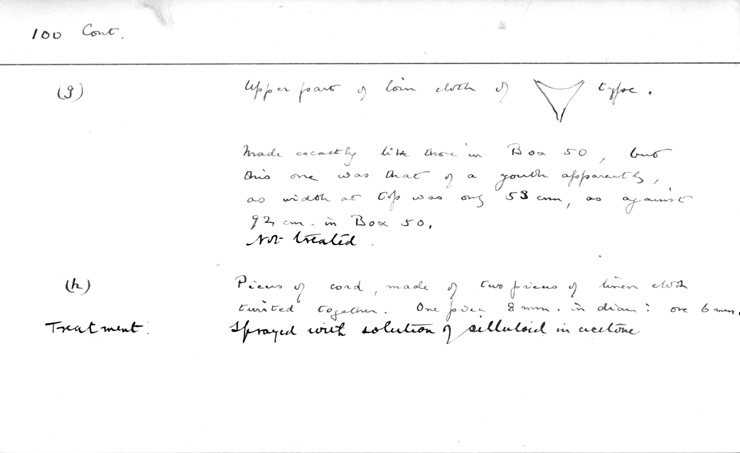 100 Cont.
(g) Upper part of loin cloth of type.
Made exactly like those in Box 50, but
this one was that of a youth apparently,
as width at top was only 53 cm, as against
92 cm. in Box 50.
Not treated.
(h) Pieces of cord, made of two pieces of linen cloth
twisted together. One piece 8 mm. in diam: one 6 mm.
Treatment: Sprayed with solution of celluloid in acetone.